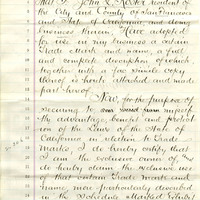 That I, John L. Koster, resident of
the City and County of San Francisco
and State of California, and doing
business therein, Have adopted
for use in my business a certain
Trade Mark and name, a full
and complete description of which,
together with a fac simile copy
thereof is hereto attached and made
part hereof.
Now, for the purpose of
securing to
the advantage, benefit and protect-
ion of the Laws of the State of
California in relation to Trade
Marks, I do hereby certify that
I am the exclusive owner of, and
do hereby claim the exclusive use
of that certain Trade Mark and
name more particularly described
in the Schedule attached